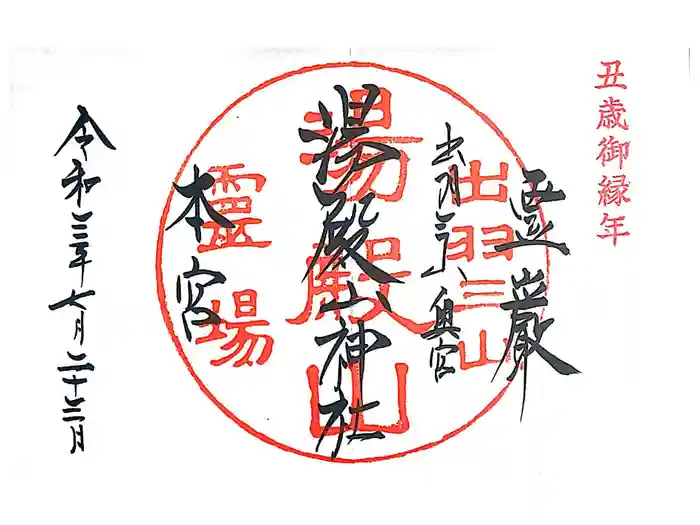 丑歳御縁年
霊巌
出羽三山奥宮
湯殿山神社
本宮
令和三年七月二十三日
出羽三山
湯殿山
靈場